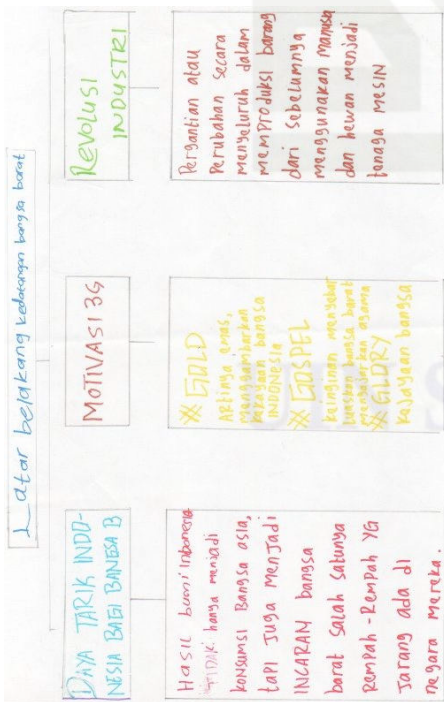 Latar belakang kedatangan bangsa barat
DAYA TARIK INDO-
NESIA BAGI BANGSA B
Hasil bumi indonesia
TIDAK hanya menjadi
konsumsi Bangsa asia,
tapi Juga menjadi
INCARAN bangsa
barat salah satunya
Rempah-Rempah YG
Jarang ada di
negara mereka.
MOTIVASI 3G
GOLD
Artinya emas,
menggambarkan
kekayaan bangsa
INDONESIA
GOSPEL
keinginan menyebar
luaskan bangsa barat
mengajarkan agama
GLORY
kejayaan bangsa
REVOLUSI
INDUSTRI
Pergantian atau
Perubahan secara
menyeluruh dalam
memproduksi barang
dari sebelumnya
menggunakan manusia
dan hewan menjadi
tenaga MESIN